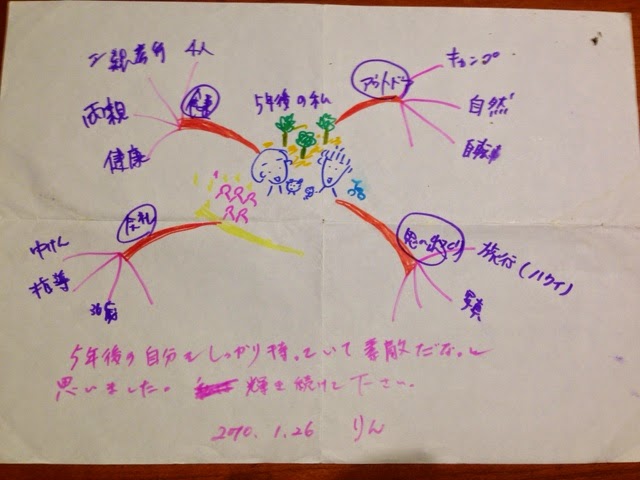 5年後の私
4人
両親
健康
アウトドア
キャンプ
自然
自転車
指導
思い出作り
旅行(ハワイ)
写真
5年後の自分をしっかり持っていて素敵だなぁと
思いました。 輝き続けて下さい。
2010.1.26 りん